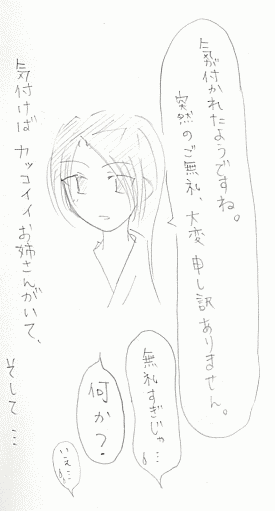 気が付かれたようですね。
突然のご無礼、大変申し訳ありません。
無礼すぎじゃ…
何か?
いえ…
気付けばカッコイイお姉さんがいて、
そして…